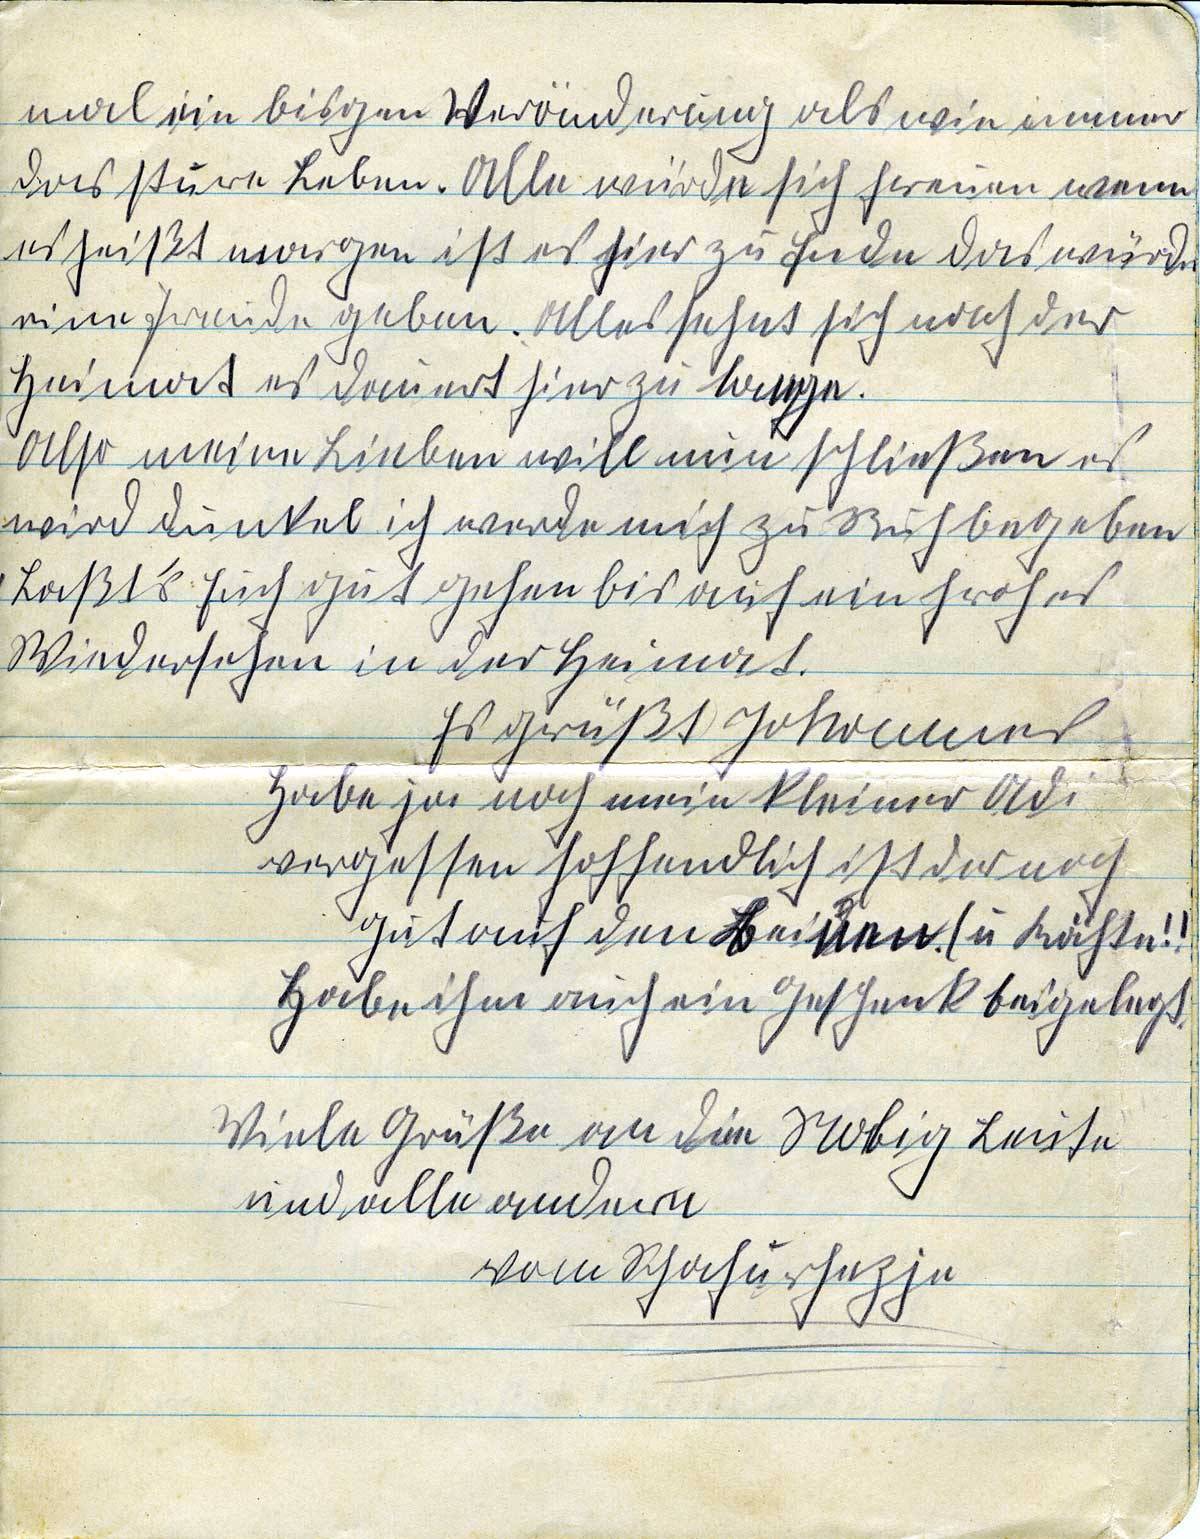 mal ein bisgen Veränderung als wie immer
das sture Leben. Alle würde sich freuen wenn
es heißt morgen ist es hier zu Ende das würde
eine Freude geben. Alles sehnt sich nach der
Heimat es dauert hier zu lange.
Also meine Lieben will nun schließen es
wird dunkel ich werde mich zu Ruh begeben
Laßt's Euch gut gehen bis auf ein frohes
Wiedersehen in der Heimat.
Es grüßt
Habe ja noch mein kleiner Adi
vergessen hoffendlich ist der noch
gut auf den Beinen. (u Käthe!!
Habe ihm auch ein Geschenk beigelegt.
Viele Grüße an die Leute
und alle andern
vom